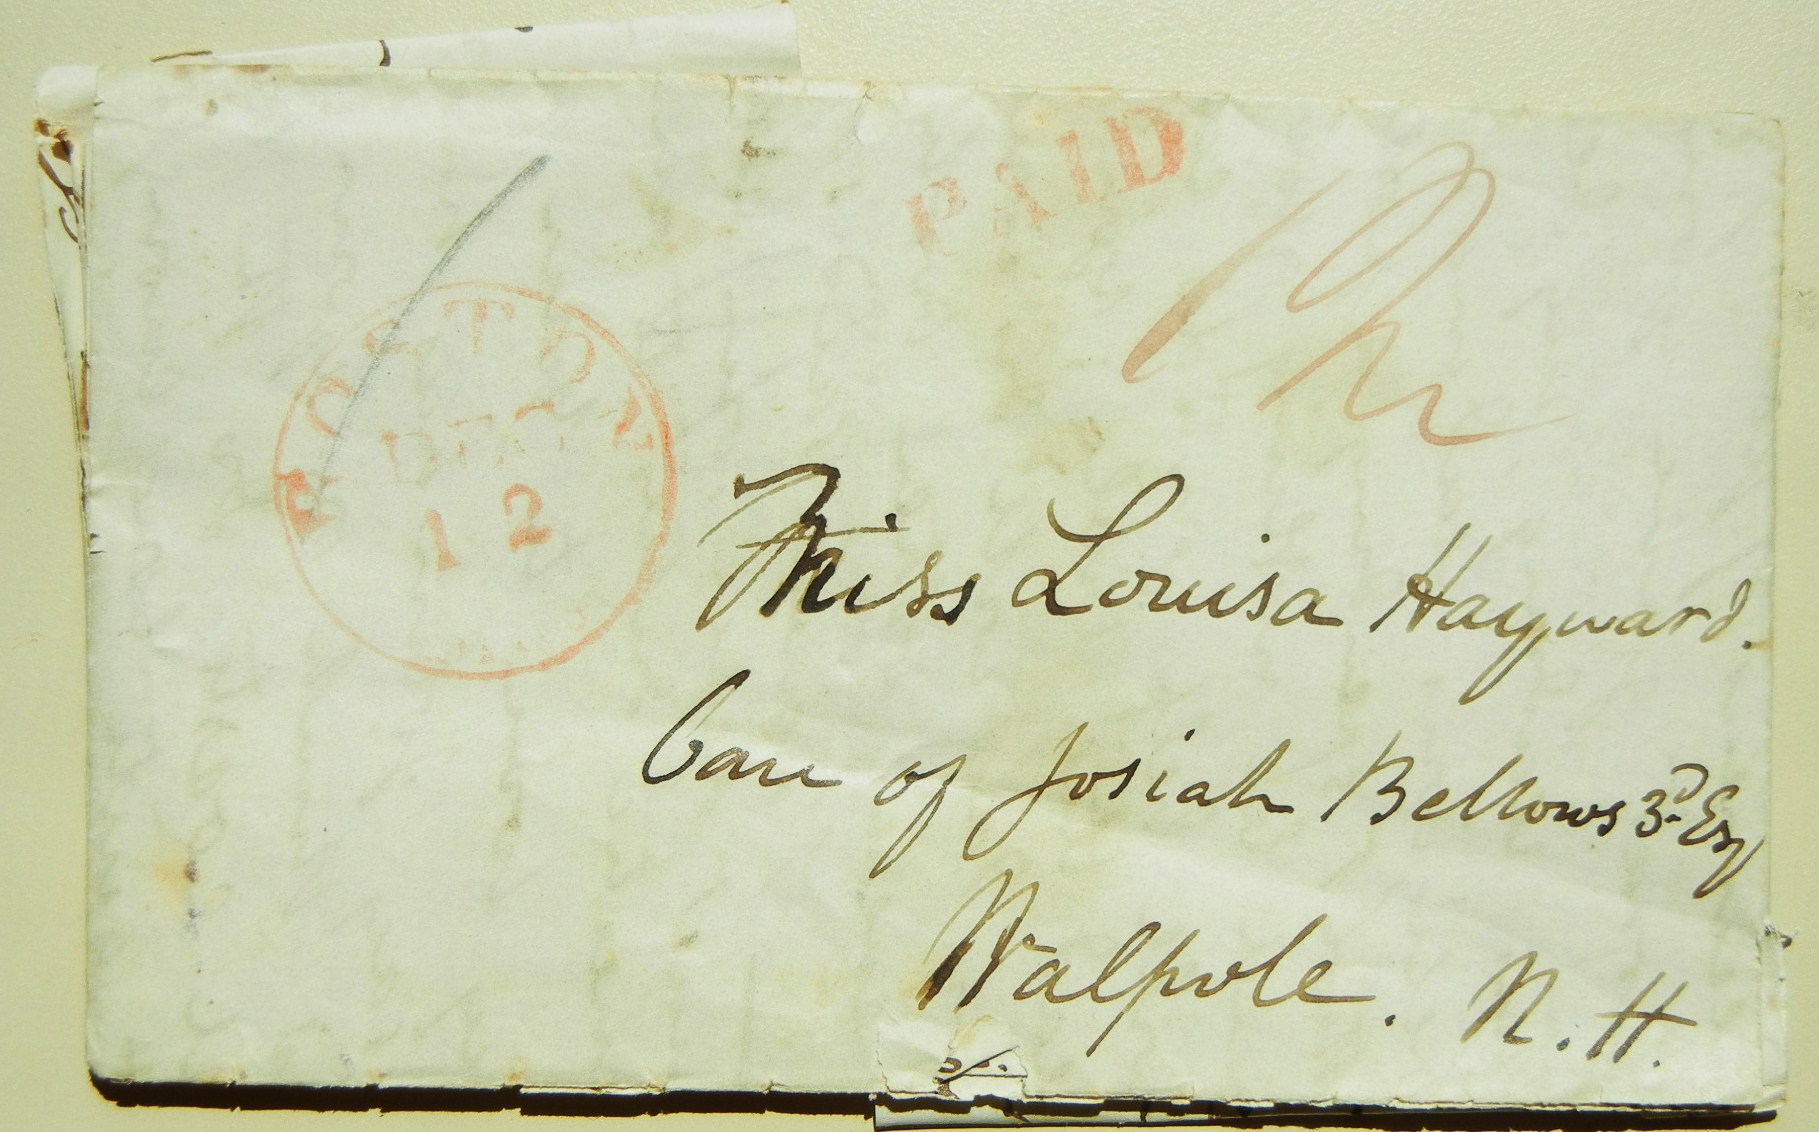 PAID
BOSTON
DEC
12
Miss Louisa Hayward.
Care of Josiah Bellows 3d Esq
Walpole. N. H.